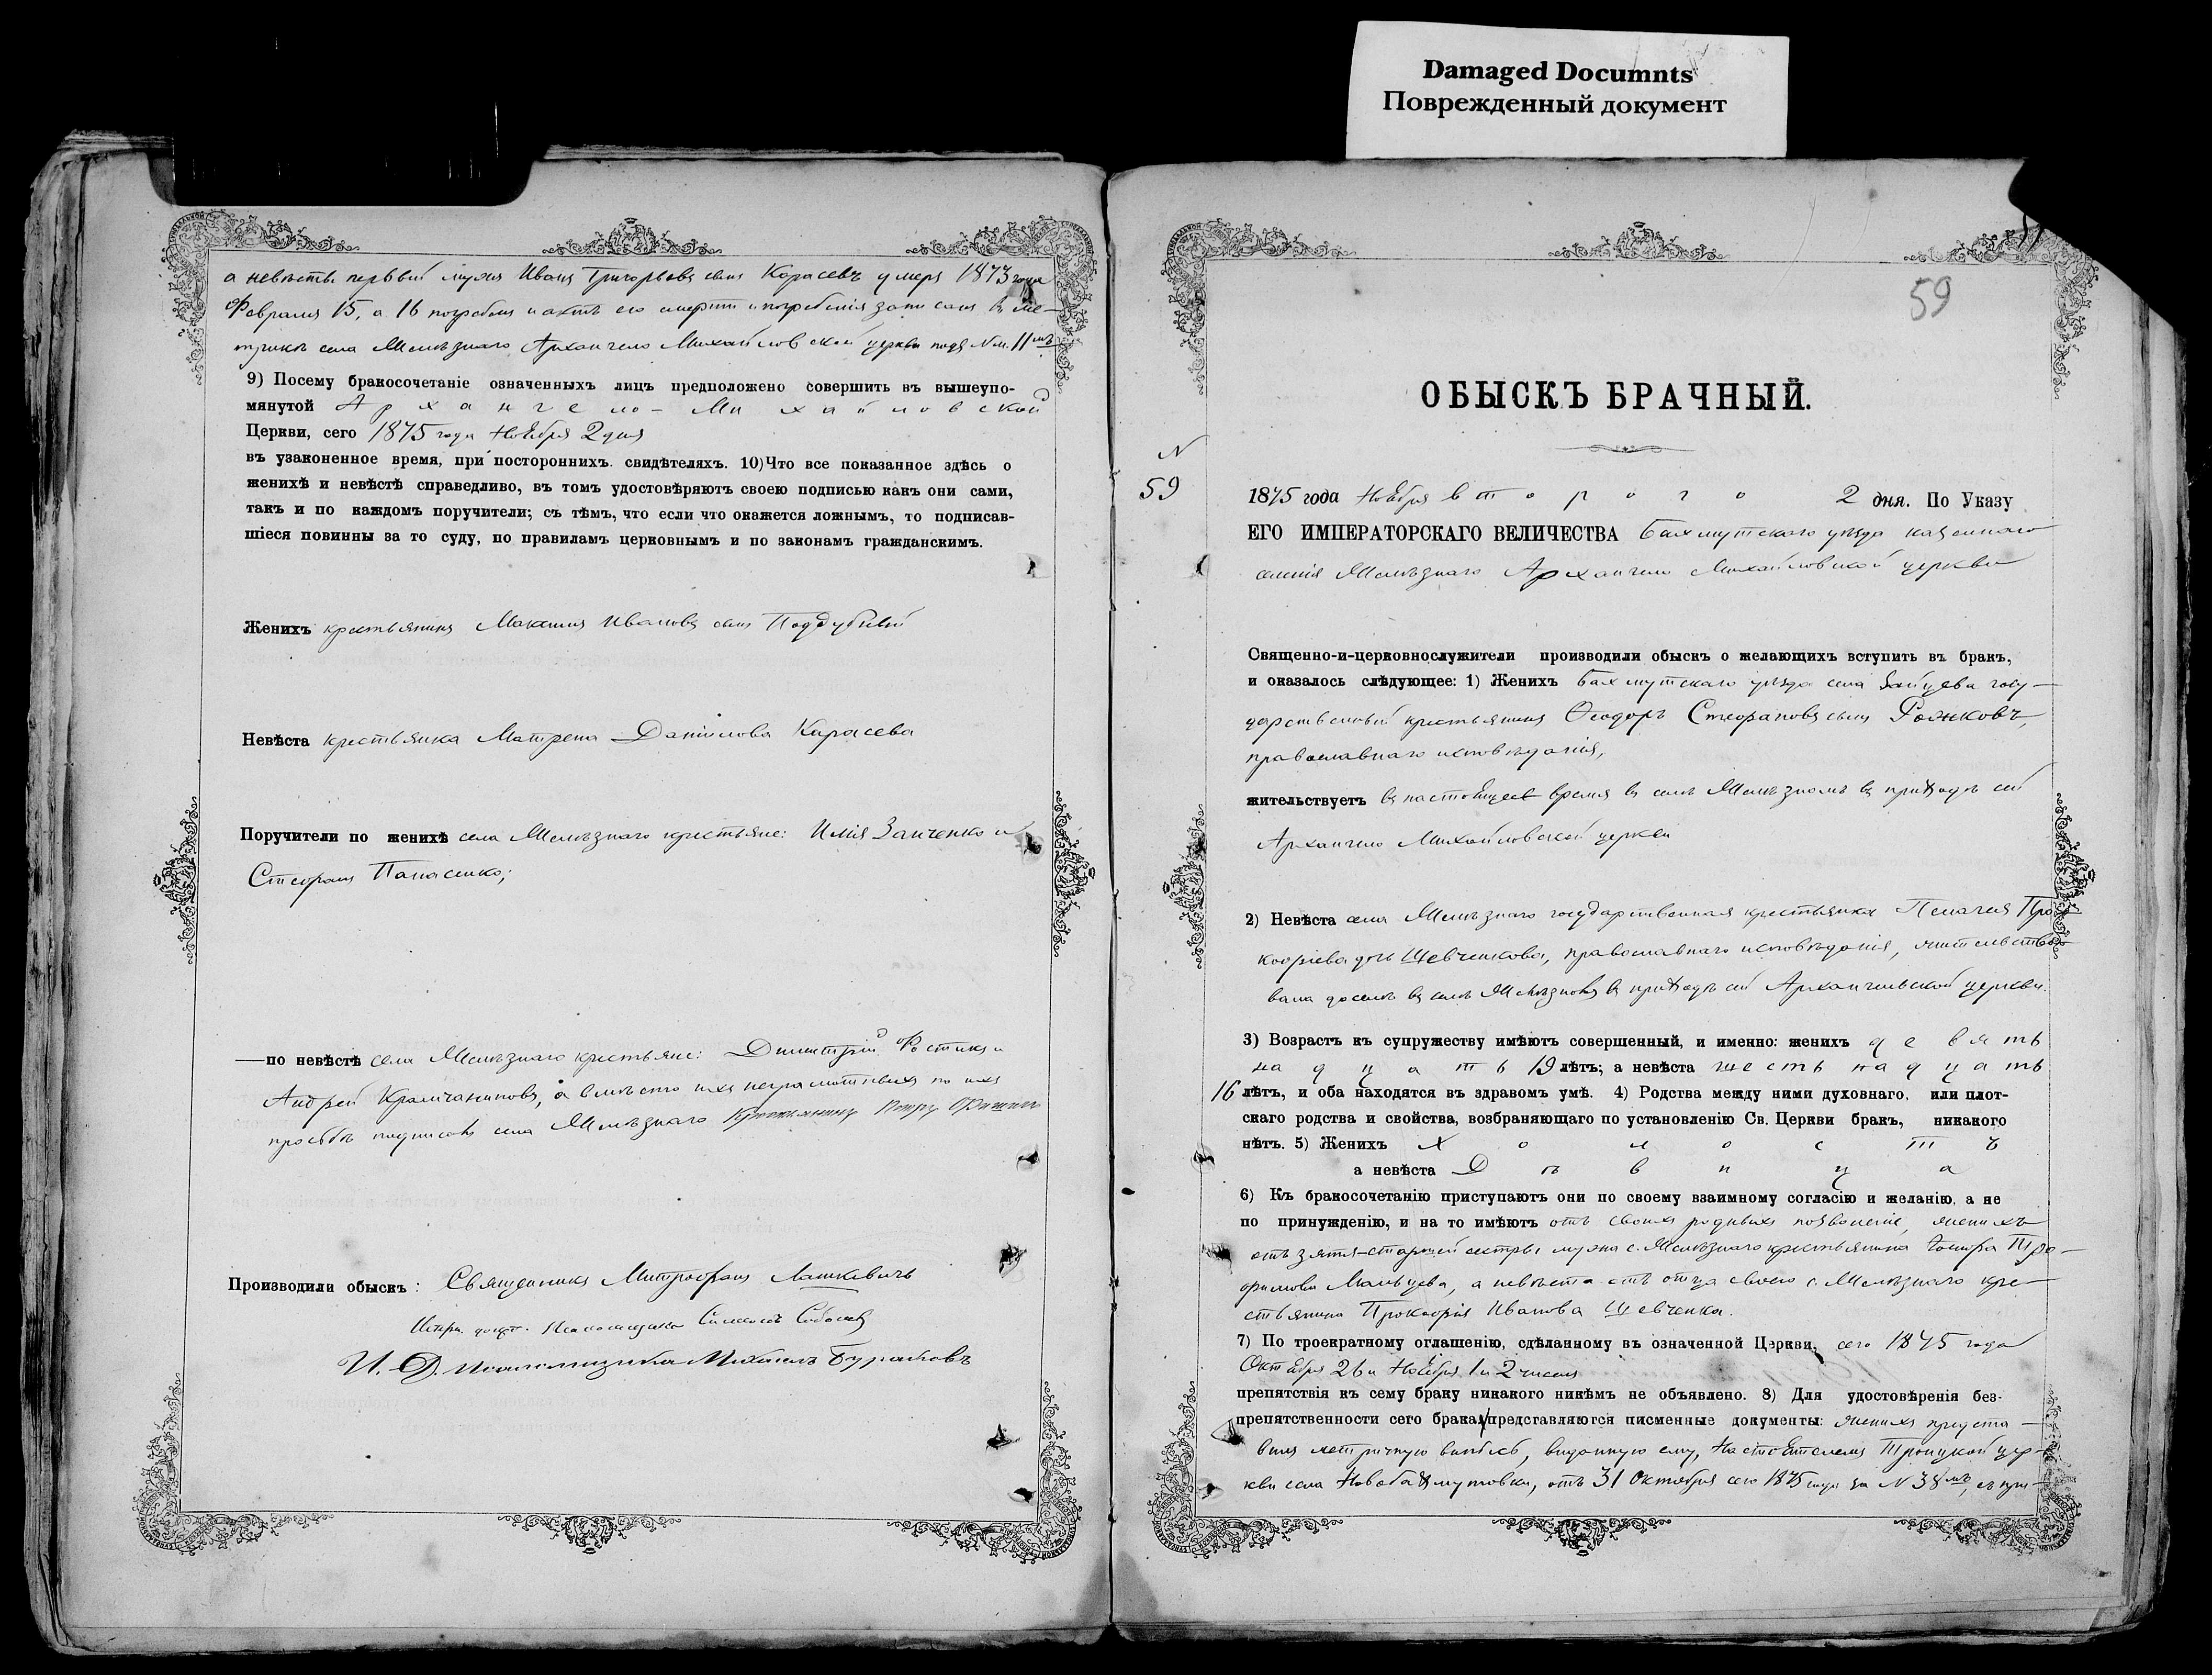 Damaged Documnts
Поврежденный документ
а невѣсты первый мужъ Иванъ Григорьевъ сынъ Карасевъ умеръ 1873 года
Февраля 15, а 16 погребенъ и актъ его смерти и погребенія записанъ въ ме-
трикѣ села Желѣзнаго Архангело Михайловской церкви подъ №м. 11мъ
9) Посему бракосочетаніе означенныхъ лицъ предположено совершить въ вышеупо-
мянутой Архангело-Михайловской
Церкви, сего 1875 года Ноября 2 дня
въ узаконенное время, при постороннихъ. свидѣтеляхъ. 10)Что все показанное здѣсь о
женихѣ и невѣстѣ справедливо, въ томъ удостовѣряютъ своею подписью какъ они сами,
такъ и по каждомъ поручители; съ тѣмъ, что если что окажется ложнымъ, то подписав-
шіеся повинны за то суду, по правиламъ церковнымъ и по законамъ гражданскимъ.
Женихъ крестьянинъ Максимъ Ивановъ сынъ Поддубный
Невѣста крестьянка Матрена Даніилова Карасева
Поручители по женихѣ села Желѣзнаго крестьяне: Илія Заиченко и
Стефанъ Панасенко;
—по невѣстѣ села Желѣзнаго крестьяне: Димитрій
Андрей а вмѣсто ихъ неграмотныхъ по ихъ
просьбѣ подписов села Желѣзнаго Крестьянинъ Петръ
Производили обыскъ: Священникъ Митрофанъ Лашкевичъ
Псаломщика Симеонъ Соболевъ
И. Д. Псаломщика Михаилъ Бураковъ
59
ОБЫСКЪ БРАЧНЫЙ.
N
59
1875 года Ноября второго 2 дня. По Указу
ЕГО ИМПЕРАТОРСКАГО ВЕЛИЧЕСТВА Бахмутскаго уѣзда казеннаго
селенія Желѣзнаго Архангело Михайловской церкви
Священно-и-церковнослужители производили обыскъ о желающихъ вступить въ бракъ,
и оказалось слѣдующее: 1) Женихъ Бахмутскаго уѣзда села Зайцева госу-
дарственный крестьянинъ Ѳеодоръ Стефановъ сынъ Рожковъ,
православнаго исповѣданія,
жительствуетъ въ настоящее время въ селѣ Желѣзномъ въ приходѣ сей
Архангело Михайловской церкви
2) Невѣста села Желѣзнаго государственная крестьянка Пелагея Про-
кофіева дочь Шевченкова, православнаго исповѣданія, жительство-
вала доселѣ въ селѣ Желѣзномъ въ приходѣ сей Архангельской церкви.
3) Возрастъ къ супружеству имѣютъ совершенный, и именно: женихъ девять
надцать 19 лѣтъ; а невѣста шестьнадцать
16 лѣтъ, и оба находятся въ здравомъ умѣ. 4) Родства между ними духовнаго, или плот-
скаго родства и свойства, возбраняющаго по установленію Св. Церкви бракъ, никакого
нѣтъ. 5) Женихъ Холостъ
а невѣста Дѣвица
6) Къ бракосочетанію приступаютъ они по своему взаимному согласію и желанію, а не
по принужденію, и на то имѣютъ отъ своихъ родныхъ позволеніе, женихъ
отъ зятя-старшей сестры мужа с. Желѣзнаго крестьянина Тро-
фимова Мальцева, а невѣста отъ отца своего с. Желѣзнаго кре-
стьянина Прокофія Иванова Шевченка.
7) По троекратному оглашенію, сдѣланному въ означенной Церкви, сего 1875 года
Октября 26 и Ноября 1 и 2 чиселъ
препятствія къ сему браку никакого никѣмъ не объявлено. 8) Для удостовѣренія без-
препятственности сего брака представляются писменные документы: женихъ предста-
вилъ метричную выпись, выданную ему, Настоятелемъ Троицкой цер-
кви села Новобахмутовки, отъ 31 Октября сего 1875 года за N 38мъ, съ при-